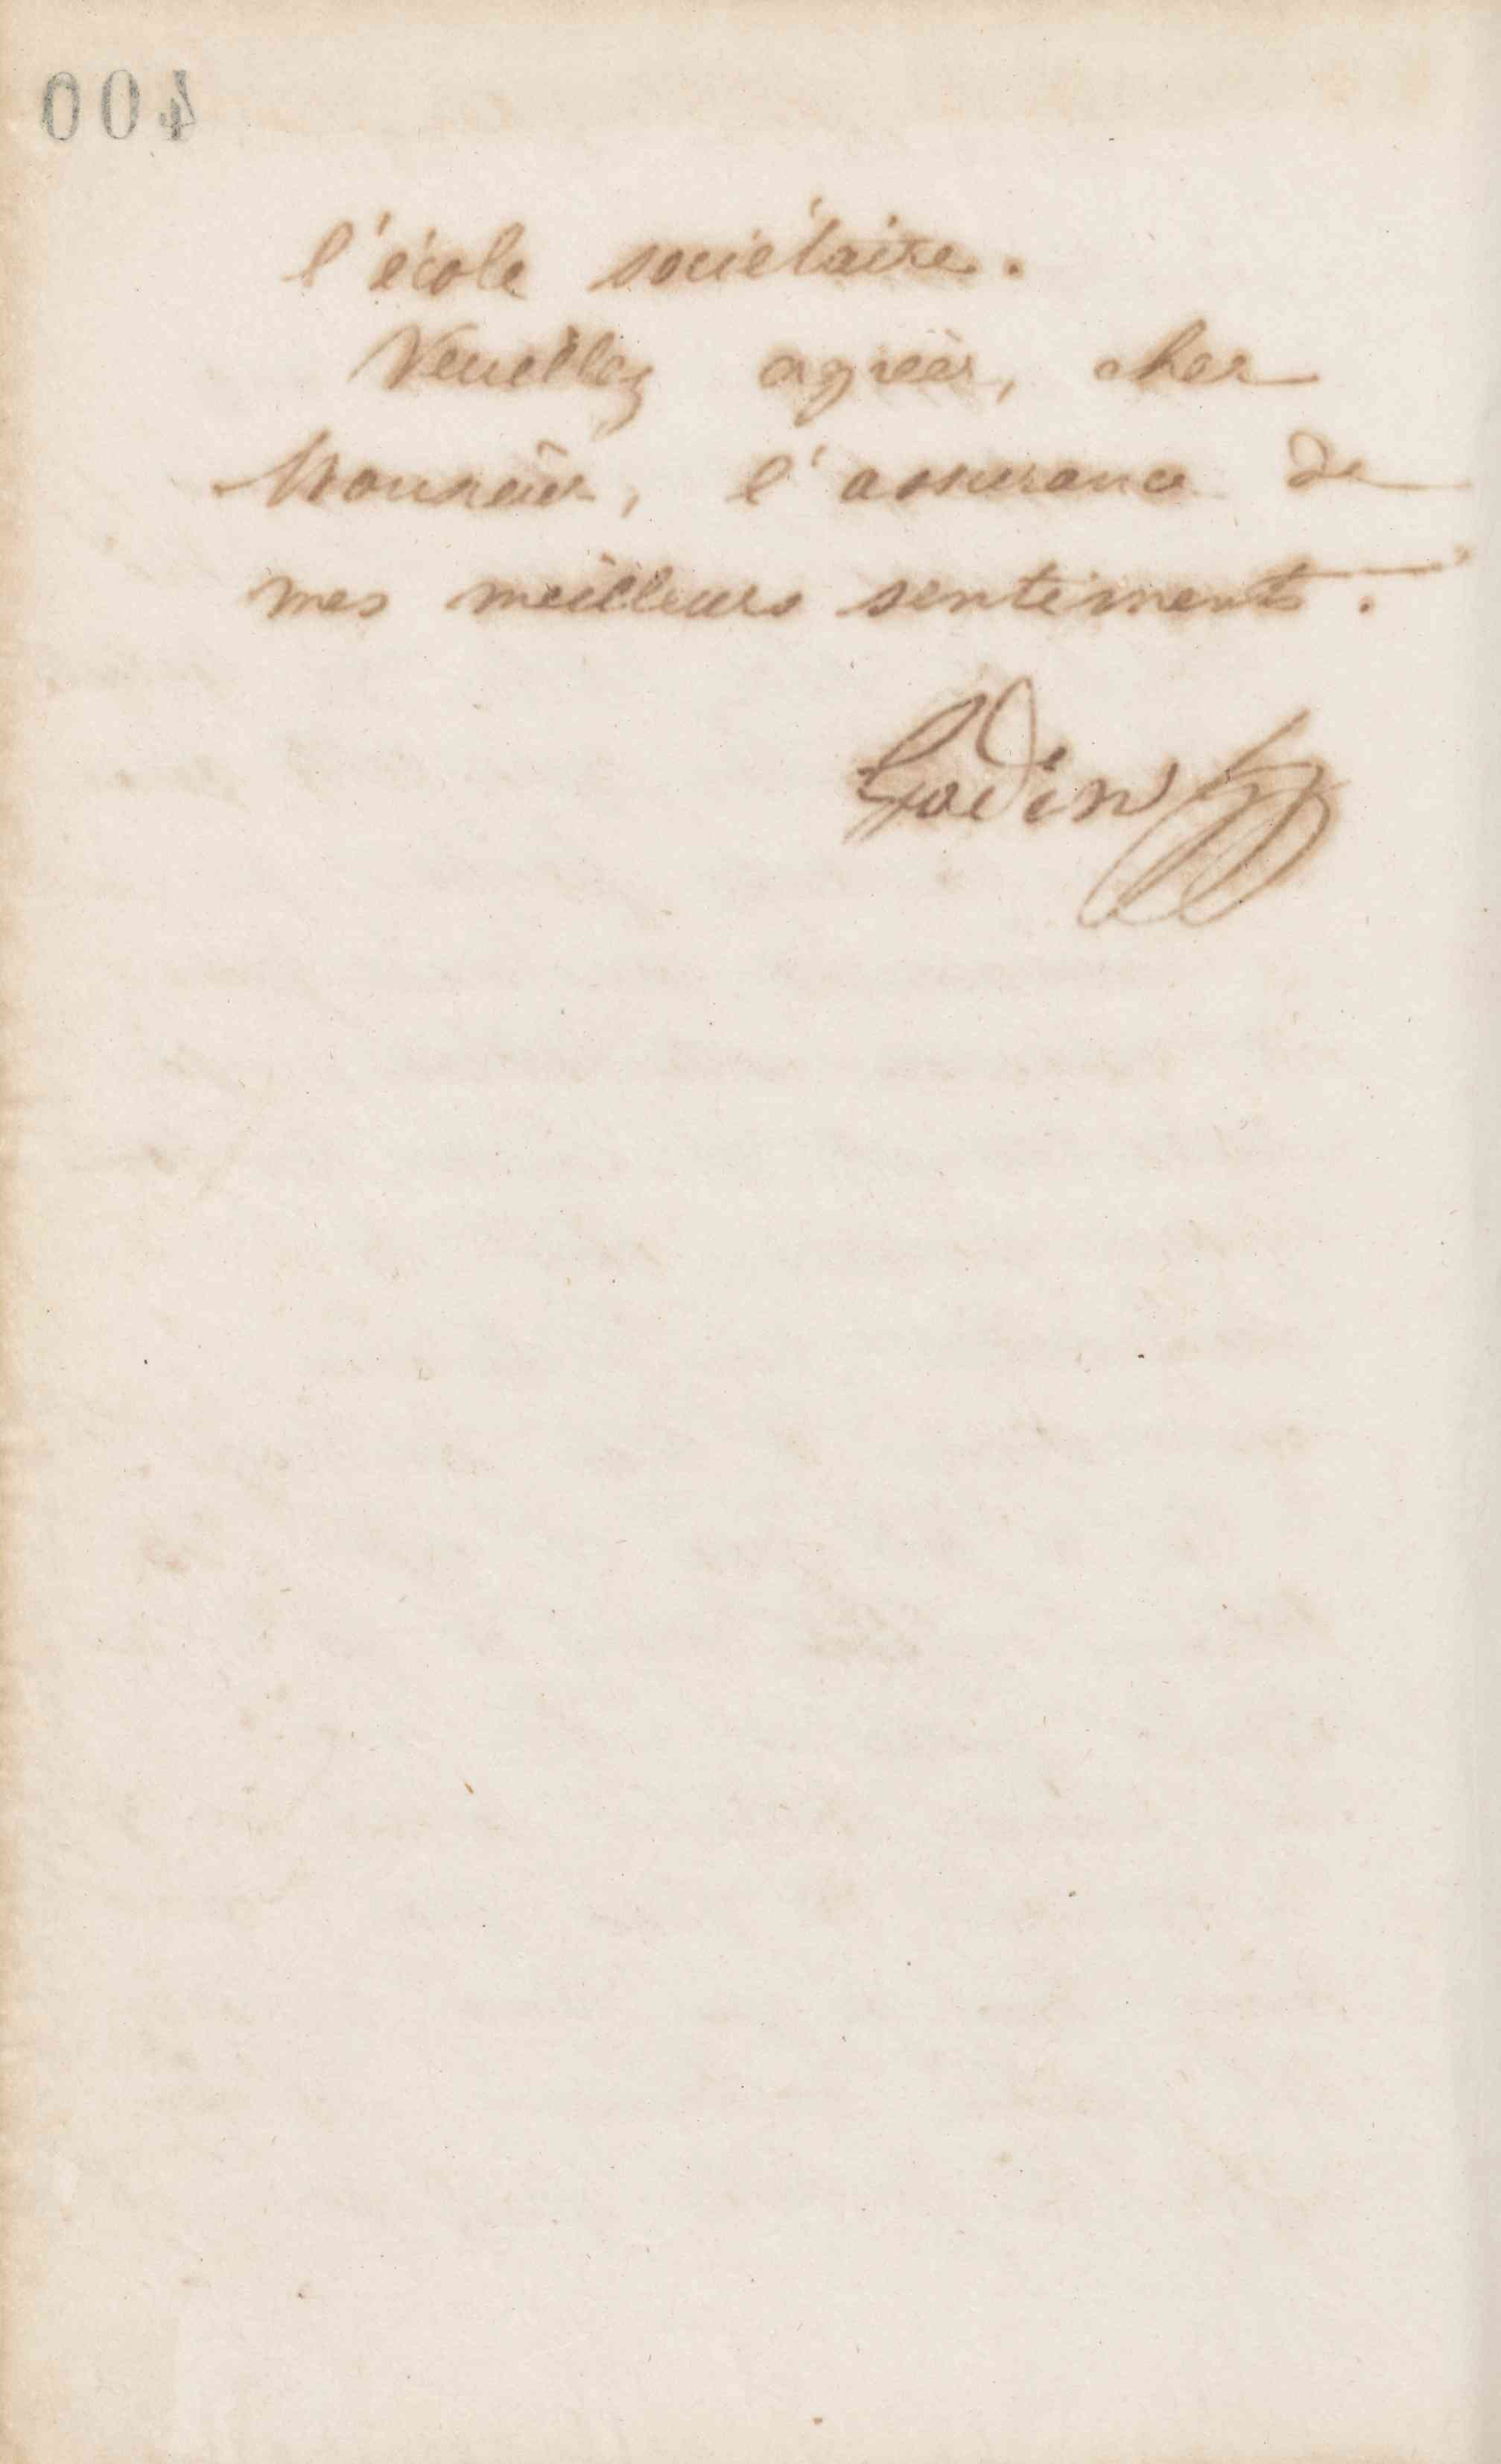 400
l'école sociétaire.
Veuillez agréer, cher
Monsieur, l'assurance de
mes meilleurs sentiments.
Godin